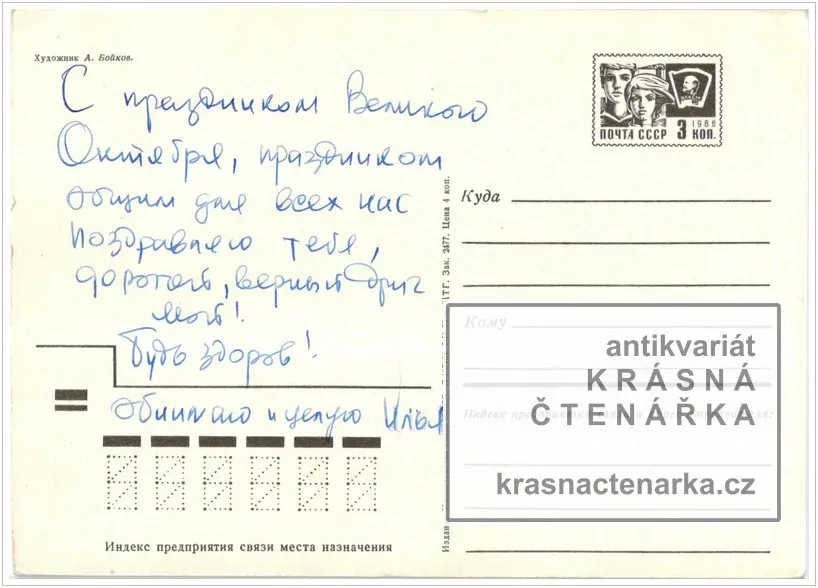 Художник А. Бойков.
С праздником Великого
Октября, праздником
общим для всех нас
Поздравляю тебя,
дорогой, верный друг
мой!
Будь здоров!
Обнимаю и целую Илья
Индекс предприятия связи места назначения
1966
ПОЧТА СССР 3 КОП.
Зак. 2477. Цена 4 коп.
Куда
Кому
antikvariát
KRÁSNÁ
ČTENÁŘKA
Индекс предприятия
krasnactenarka.cz